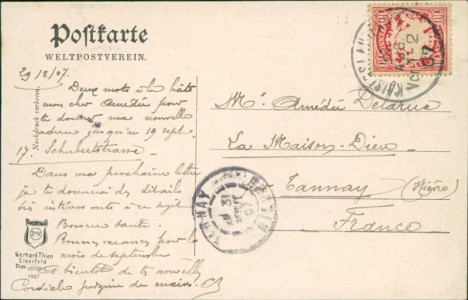 Postkarte
WELTPOSTVEREIN.
29/8/07.
Deux mots à la hâte
mon cher Amédée pour
te donner ma nouvelle
adresse jusqu'au 19 sept.
17. Schubertstrasse
Dans ma prochaine lettre
je te donnerai des détails
Bonne santé.
Bonnes vacances pour le
mois de septembre
A bientôt de tes nouvelles
Cordiale poignée de mains. CB
Nachdruck verboten.
Gerhard Thien
Elberfeld
1907
10
Mr. Amédée Delarue
La Maison-Dieu
Tannay (Nièvre)
France